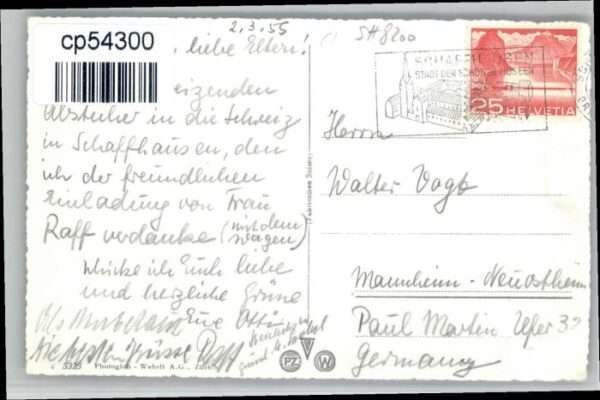 cp54300
2.3.55
SH8200
, liebe Eltern!
Abstecher in die Schweiz
in Schaffhausen, den
ich der freundlichen
Einladung von Frau
Raff verdanke (mit dem
Wagen)
schicke ich Euch liebe
und herzliche Grüsse
Eure
Die besten Grüsse Raff
STADT DER
25 HELVETIA
Herrn
Walter Vogt
Mannheim - Neuostheim
Paul Martin Ufer 32
Germany
5329 Photoglob - Wehrli A.G., Zürich
PZ W